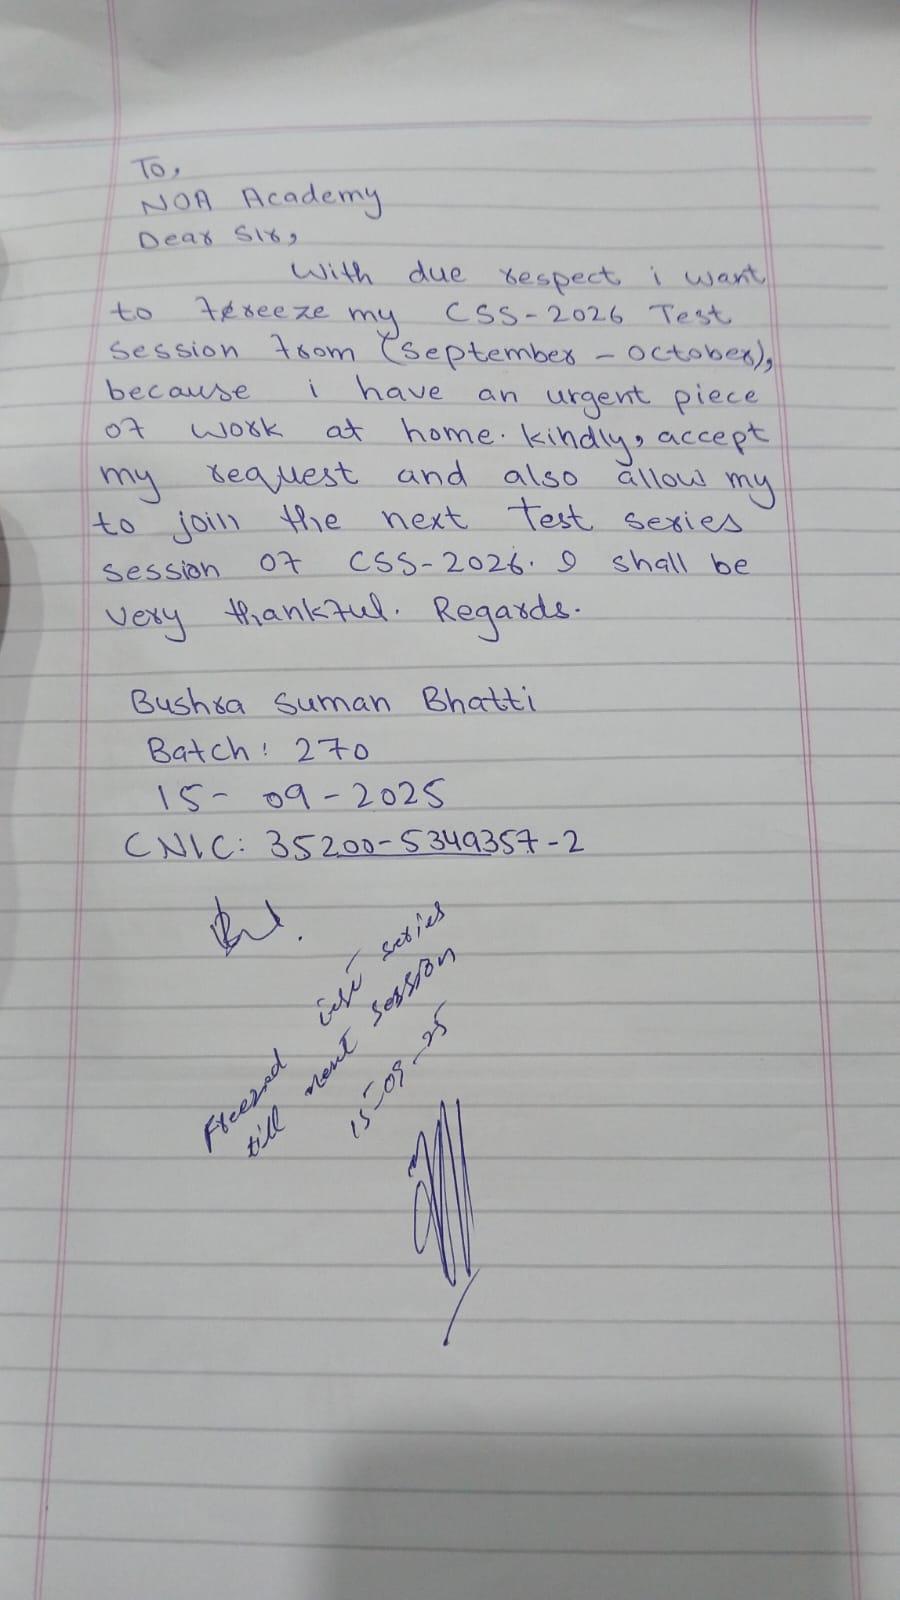 To,
NOA Academy
Dear Sir,
With due respect i want
to freeze my CSS-2026 Test
session from (September - October),
because i have an urgent piece
of work at home. kindly, accept
my request and also allow my
to join the next Test series
session of CSS-2026. I shall be
very thankful. Regards.
Bushra Suman Bhatti
Batch: 270
15- 09-2025
CNIC: 35200-5349357-2
Freezed test series
till next session
15-09-25